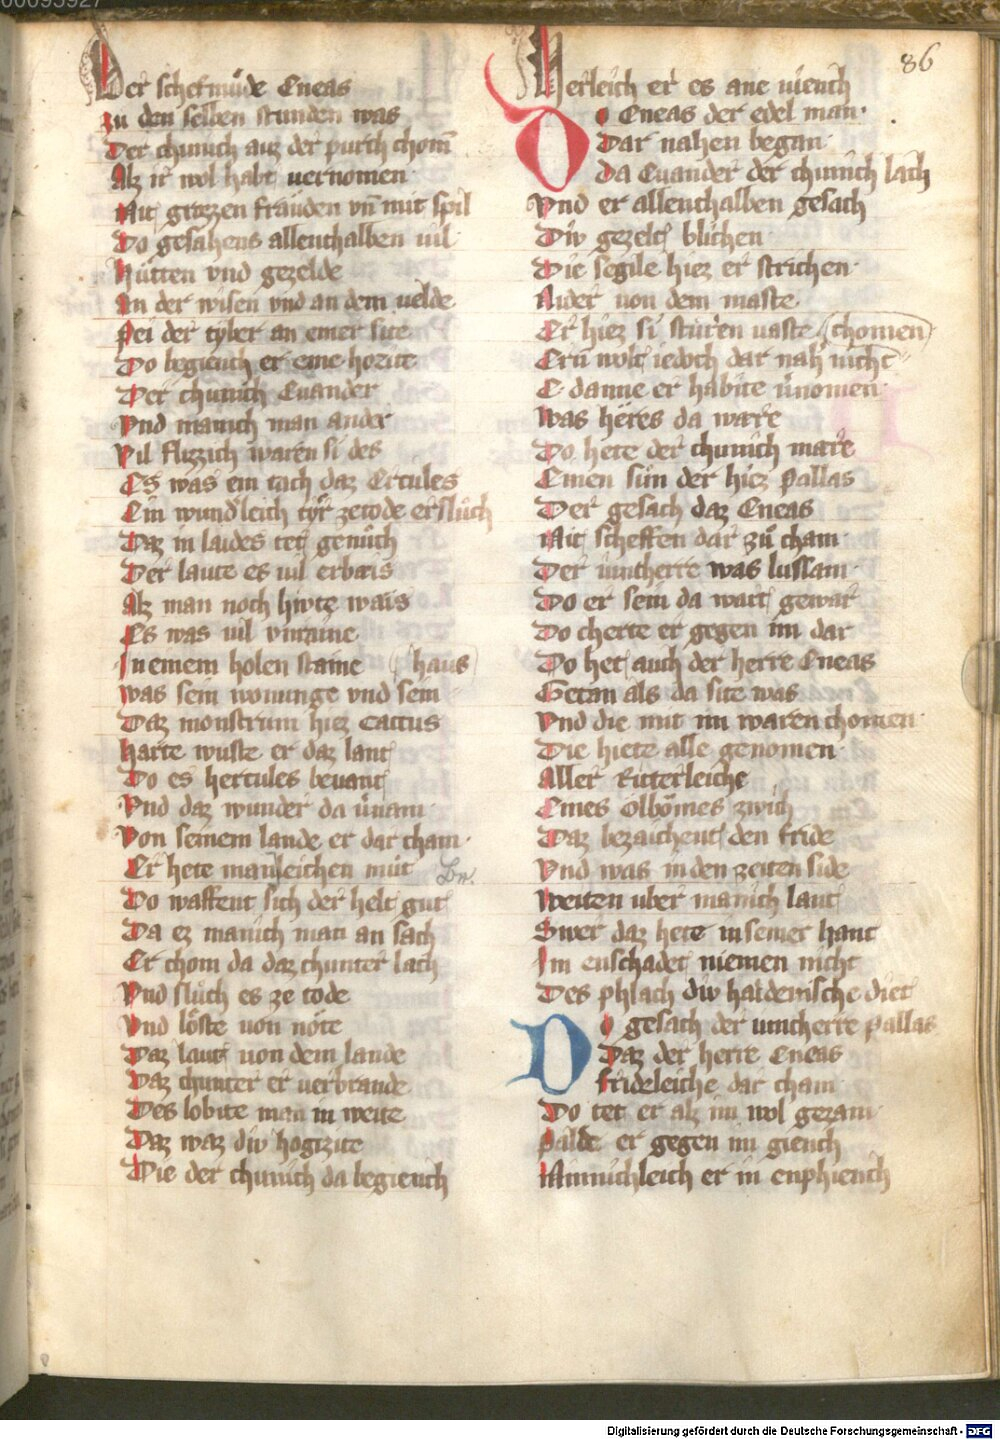 86
Der schefmůde Eneas
Zu den selben stunden was
Der chunich auz der purch chom̄
Alz ir wol habt vernomen
Mit grozzen frauden vn̄ mit spil
Do gesahens allenthalben uil
Hütten vnd gezelde
An der wisen vnd an dem uelde
Pei der tyber an einer site
Do begiench er eine hozite
Der chunich Euander
Vnd manich man ander
Vil flizzich waren si des
Es was ein tach daz Ercules
Ein wund'leich tÿr zetode ersluch
Daz in laides tet genůch
Der laute es uil erbais
Alz man noch hivte wais
Es was uil vnraine
In einem holen staine (haus
was sein wonunge vnd sein
Daz monstrum hiez Cacus
Harte wuste er daz lant
Do es hercules bevant
Vnd daz wunder da v̄nam
Von seinem lande er dar cham
Er hete manleichen mut
Do waffent sich der helt gut
Da ez manich man an sach
Er chom da daz chunter lach
Vnd sluch es ze tode
Vnd löste uon nöte
Daz laut uon dem lande
Daz chunter er uerbrande
Des lobite man in weite
Daz waz div hogizite
Die der chunich da begiench
Herleich er es ane uiench
Do Eneas der edel man
Dar nahen began
Da Euander der chunich lach
Vnd er allenthalben gesach
Div gezelt blichen
Die segile hiez er strichen
Nider uon dem maste
Er hiez si sturen uaste (chomen)
Ern wolt iedoch dar nah nicht
E danne er habite v̄nomen
Was heres da ware
Do hete der chunich mare
Einen sun der hiez Pallas
Der gesach daz Eneas
Mit scheffen dar zů cham
Der iuncherre was lussam
Do er sein da wart gewar
Do cherte er gegen im dar
Do het auch der herre Eneas
Getan als da site was
Vnd die mit im waren chomen
Die hiete alle genomen
Aller Ritterleiche
Eines Ölbömes zwich
Daz bezaichent den fride
Vnd was in den zeiten side
Weiten uber manich lant
Swer daz hete in seiner hant
Im enschadet niemen nicht
Des phlach div haidenische diet
Do gesach der iuncherre Pallas
Daz der herre Eneas
Frideleiche dar cham
Do tet er alz im wol gezam
Palde er gegen im giench
Minnichleich er in enphiench
Digitalisierung gefördert durch die Deutsche Forschungsgemeinschaft - DFG